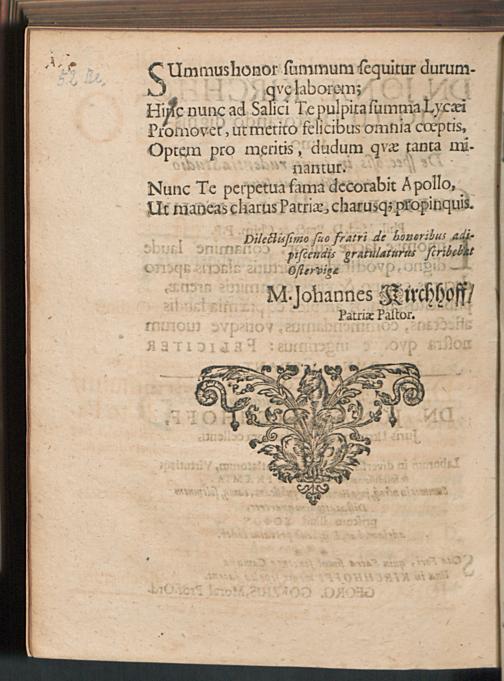 SUmmus honor summum sequitur durum-
qve laborem;
Hinc nunc ad Salici Te pulpita summa Lycæi
Promovet, ut merito felicibus omnia cœptis,
Optem pro meritis, dudum qvæ tanta mi-
nantur.
Nunc Te perpetua fama decorabit Apollo,
Ut maneas charus Patriæ, charusq; propinquis.
Dilectissimo suo fratri de honoribus adi-
piscendis gratulaturus scribebat
Ostervigæ
M. Johannes Kirchhoff/
Patriæ Pastor.